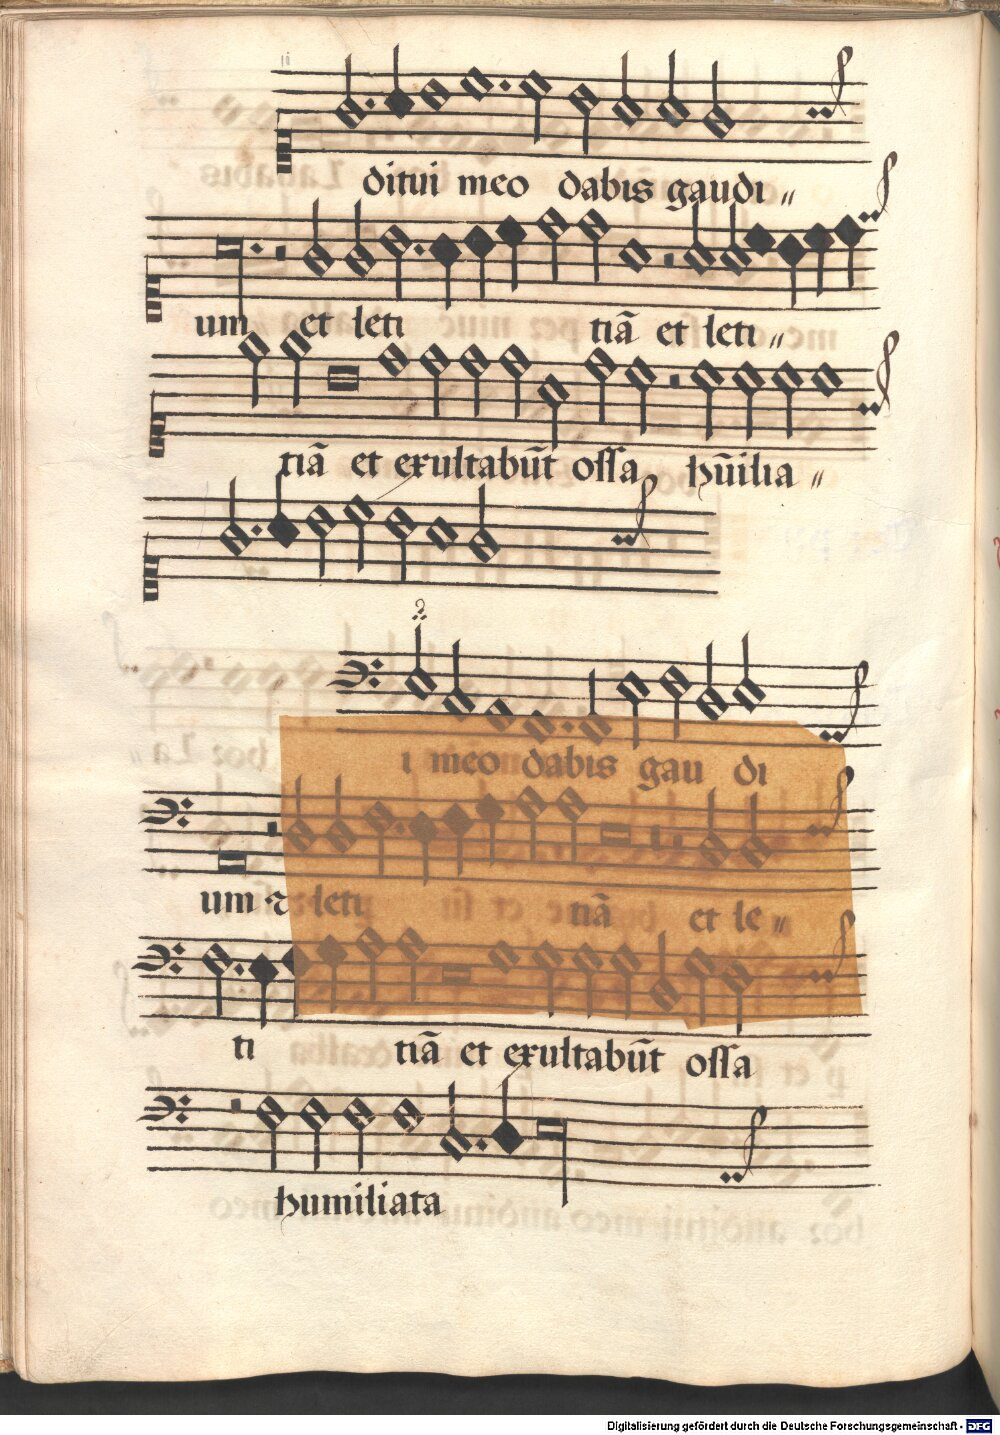 ditui meo dabis gaudi〃
um〃 et leti tiā et leti〃
tiā et exultabūt ossa hūilia〃
i meo dabis gau di
um ⁊ leti tiā et le〃
ti tiā et exultabūt ossa
humiliata
Digitalisierung gefördert durch die Deutsche Forschungsgemeinschaft - DFG